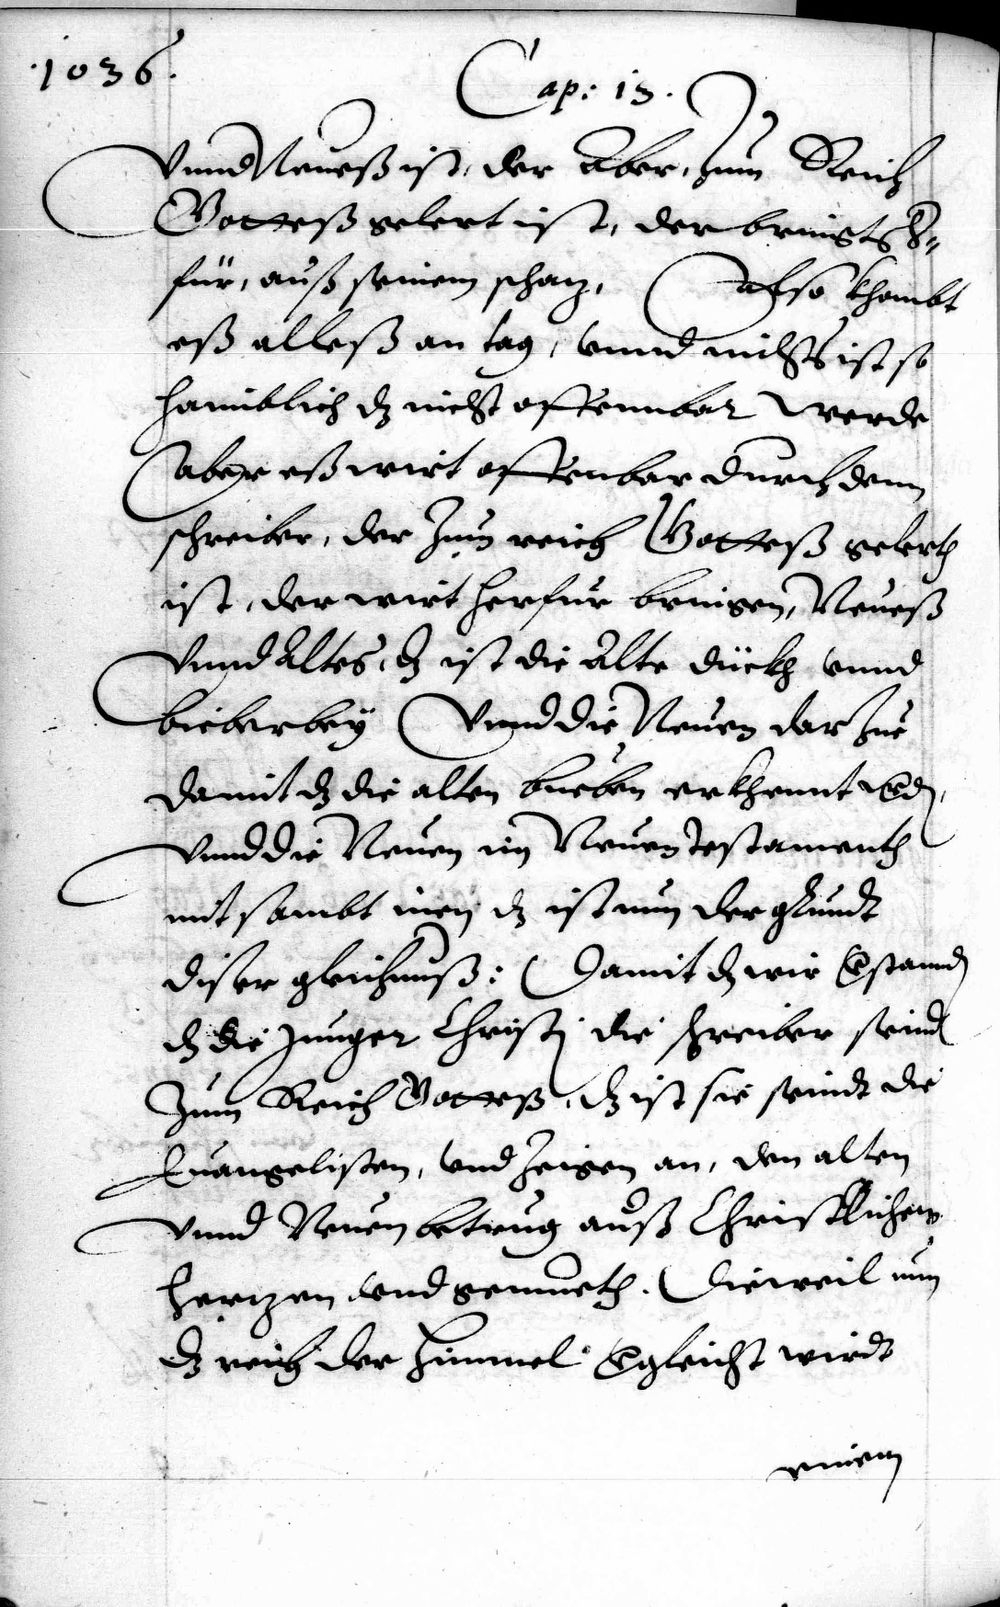 .1036.
Cap: 13.
Vnnd Neueß ist, der Aber, zum Reich
Gotteß gelert ist, der bringts h
für, auß seinem schatz, Also khombt
eß alleß an tag, vnnd nichts ist so
haimblich dz nicht offennbar werde
Aber eß wirt offenbar durch denn
schreiber, der zum reich Gotteß gelerth
ist, der wirt herfür bringen, Neueß
Vnnd Altes, dz ist die Alte dückh vnnd
bieberbey Vnnd die Neuen darzue
damit dz die alten bueben erkhennt werd,
Vnnd die Neuen im Neuen Testamenth
mit sambt inen dz ist nun der grundt
diser gleichnuß: Damit dz wir verstannd
dz die Junger Christi die schreiber seind
zum Reich Gotteß, dz ist sie seindt die
Euangelisten, vnd zeigen an, den alten
vnnd Neuen betrug auß Christlichem
hertzen vnd gemueth. Dieweil nun
dz reich der himmel vergleicht wirdt
einem